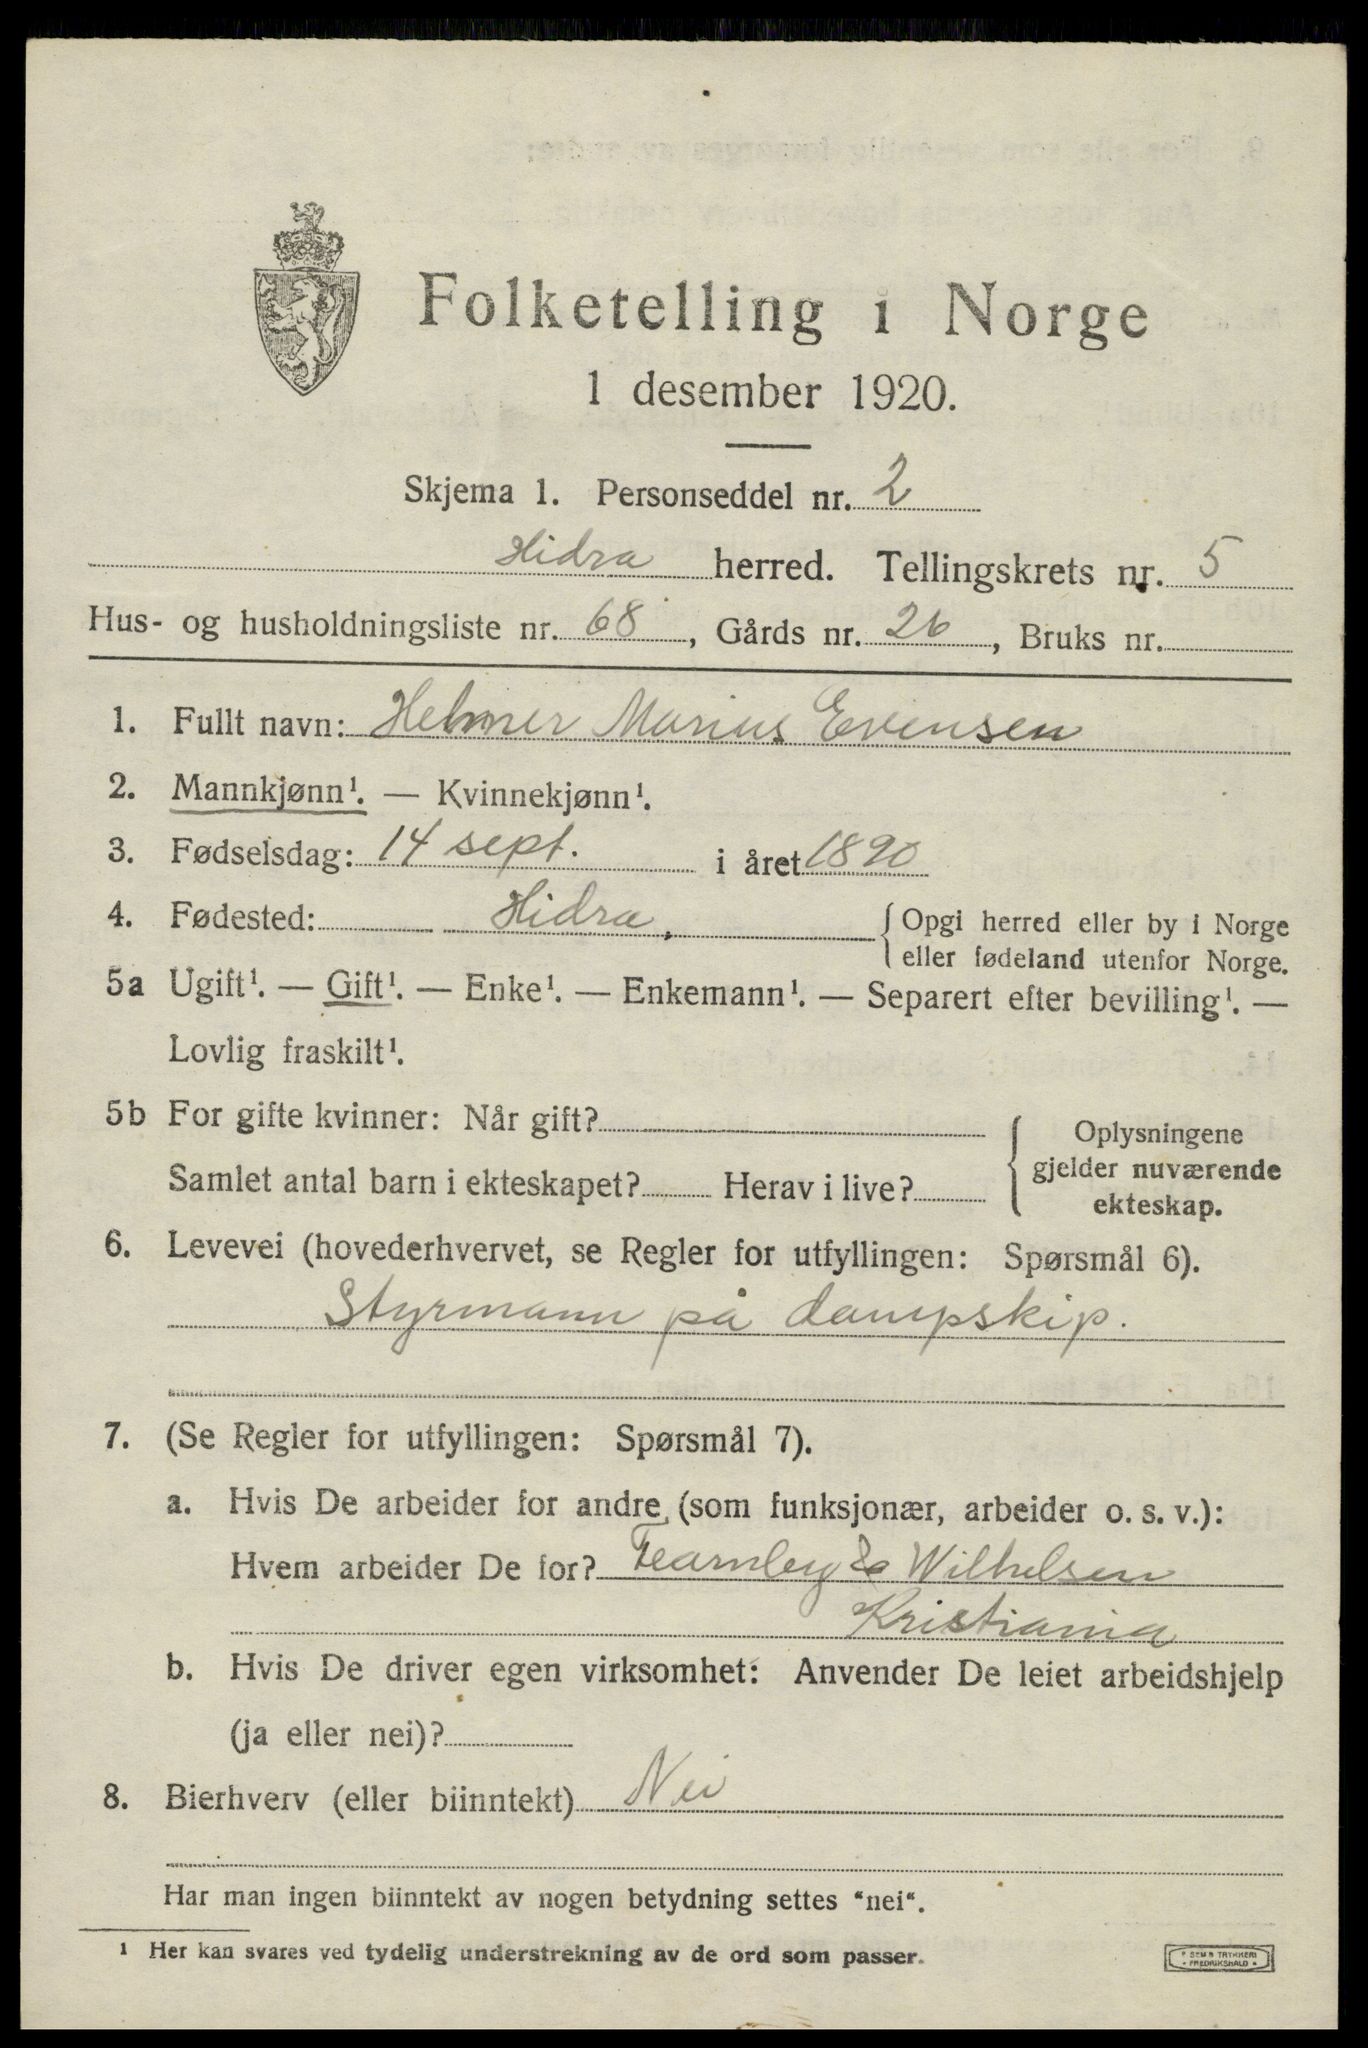 Folketelling i Norge
1 desember 1920.
Skjema 1. Personseddel nr. 2
Hidra herred. Tellingskrets nr. 5
Hus- og husholdningsliste nr. 68, Gårds nr. 26, Bruks nr.
1. Fullt navn: Helmer Marius Evensen
2. Mannkjønn¹. — Kvinnekjønn¹.
3. Fødselsdag: 14 sept. i året 1890
4. Fødested: Hidra, { Opgi herred eller by i Norge
eller fødeland utenfor Norge.
5a Ugift¹. — Gift¹. — Enke¹. — Enkemann¹. — Separert efter bevilling¹. —
Lovlig fraskilt¹.
5b For gifte kvinner: Når gift? { Oplysningene
gjelder nuværende
Samlet antal barn i ekteskapet? Herav i live?
ekteskap.
6. Levevei (hovederhvervet, se Regler for utfyllingen: Spørsmål 6).
Styrmann på dampskip.
7. (Se Regler for utfyllingen: Spørsmål 7).
a. Hvis De arbeider for andre (som funksjonær, arbeider o. s. v.):
Hvem arbeider De for? Fearnley & Wilhelsen
Kristiania
b. Hvis De driver egen virksomhet: Anvender De leiet arbeidshjelp
(ja eller nei)?
8. Bierhverv (eller biinntekt) Nei
Har man ingen biinntekt av nogen betydning settes "nei".
¹ Her kan svares ved tydelig understrekning av de ord som passer.
* SEM & TRYKKERI
* FREDRIKSHALD *